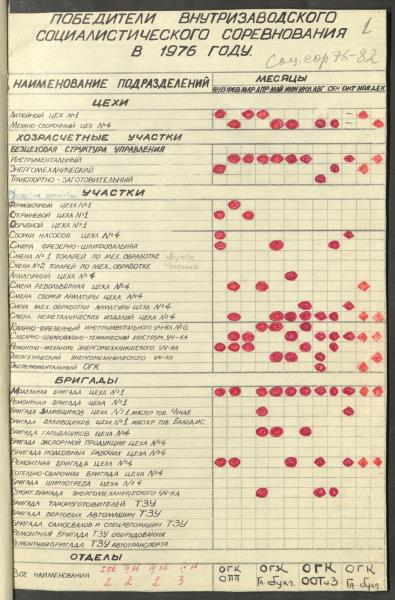 ПОБЕДИТЕЛИ ВНУТРИЗАВОДСКОГО
СОЦИАЛИСТИЧЕСКОГО СОРЕВНОВАНИЯ
В 1976 ГОДУ.
1
Соц.сор 76-82
НАИМЕНОВАНИЕ ПОДРАЗДЕЛЕНИЙ
МЕСЯЦЫ
ЯНВ ФЕВ МАР АПР МАЙ ИЮН ИЮЛ АВГ СЕН ОКТ НОЯ ДЕК
ЦЕХИ
ЛИТЕЙНЫЙ ЦЕХ №1
МЕХАНО-СБОРОЧНЫЙ ЦЕХ №4
ХОЗРАСЧЕТНЫЕ УЧАСТКИ
БЕЗЦЕХОВАЯ СТРУКТУРА УПРАВЛЕНИЯ
ИНСТРУМЕНТАЛЬНЫЙ
ЭНЕРГОМЕХАНИЧЕСКИЙ
ТРАНСПОРТНО-ЗАГОТОВИТЕЛЬНЫЙ
УЧАСТКИ
ФОРМОВОЧНЫЙ ЦЕХА №1
СТЕРЖНЕВОЙ ЦЕХА №1
ОБРУБНОЙ ЦЕХА №1
СБОРКИ НАСОСОВ ЦЕХА №4
СМЕНА ФРЕЗЕРНО-ШЛИФОВАЛЬНАЯ
СМЕНА №1 ТОКАРЕЙ ПО МЕХ. ОБРАБОТКЕ
СМЕНА №2 ТОКАРЕЙ ПО МЕХ. ОБРАБОТКЕ
АРМАТУРНЫЙ ЦЕХА №4
СМЕНА РЕВОЛЬВЕРНАЯ ЦЕХА №4
СМЕНА СБОРКИ АРМАТУРЫ ЦЕХА №4
СМЕНА МЕХ. ОБРАБОТКИ АРМАТУРЫ ЦЕХА №4
СМЕНА НЕМЕТАЛИЧЕСКИХ ИЗДЕЛИЙ ЦЕХА №4
ТОКАРНО-ФРЕЗЕРНЫЙ ИНСТРУМЕНТАЛЬНОГО УЧ-КА №6
СЛЕСАРНО-ШЛИФОВАЛЬНО-ТЕРМИЧЕСКИЙ ИНСТРУМ. УЧ-КА
РЕМОНТНО-МЕХАНИЧ. ЭНЕРГОМЕХАНИЧЕСКОГО УЧ-КА
ЭНЕРГЕТИЧЕСКИЙ ЭНЕРГОМЕХАНИЧЕСКОГО УЧ-КА
ЭКСПЕРИМЕНТАЛЬНЫЙ ОГК
БРИГАДЫ
МОДЕЛЬНАЯ БРИГАДА ЦЕХА №1
РЕМОНТНАЯ БРИГАДА ЦЕХА №1
БРИГАДА ЗАЛИВЩИКОВ ЦЕХА №1 МАСТЕР ТОВ.
БРИГАДА ЗАЛИВЩИКОВ ЦЕХА №1 МАСТЕР ТОВ.
БРИГАДА ГАЛЬВАНИКОВ ЦЕХА №4
БРИГАДА ЭКСПОРТНОЙ ПРОДУКЦИИ ЦЕХА №4
БРИГАДА ПОДСОБНЫХ РАБОЧИХ ЦЕХА №4
РЕМОНТНАЯ БРИГАДА ЦЕХА №4
КОТЕЛЬНО-СВАРОЧНАЯ БРИГАДА ЦЕХА №4
БРИГАДА ШИРПОТРЕБА ЦЕХА №4
СТРОИТ. БРИГАДА ЭНЕРГОМЕХАНИЧЕСКОГО УЧ-КА
БРИГАДА ТАРОИЗГОТОВИТЕЛЕЙ ТЗУ
БРИГАДА БОРТОВЫХ АВТОМАШИН ТЗУ
БРИГАДА САМОСВАЛОВ И СПЕЦАВТОМАШИН ТЗУ
РЕМОНТНАЯ БРИГАДА ТЗУ ОБОРУДОВАНИЯ
РЕМОНТНАЯ БРИГАДА ТЗУ АВТОТРАНСПОРТА
ОТДЕЛЫ
ВСЕ НАИМЕНОВАНИЯ
2 2 2 3
ОГК ОГК ОГК ОГК
ОПП ГЛ. БУХГ. ООТиЗ ГЛ. БУХГ.